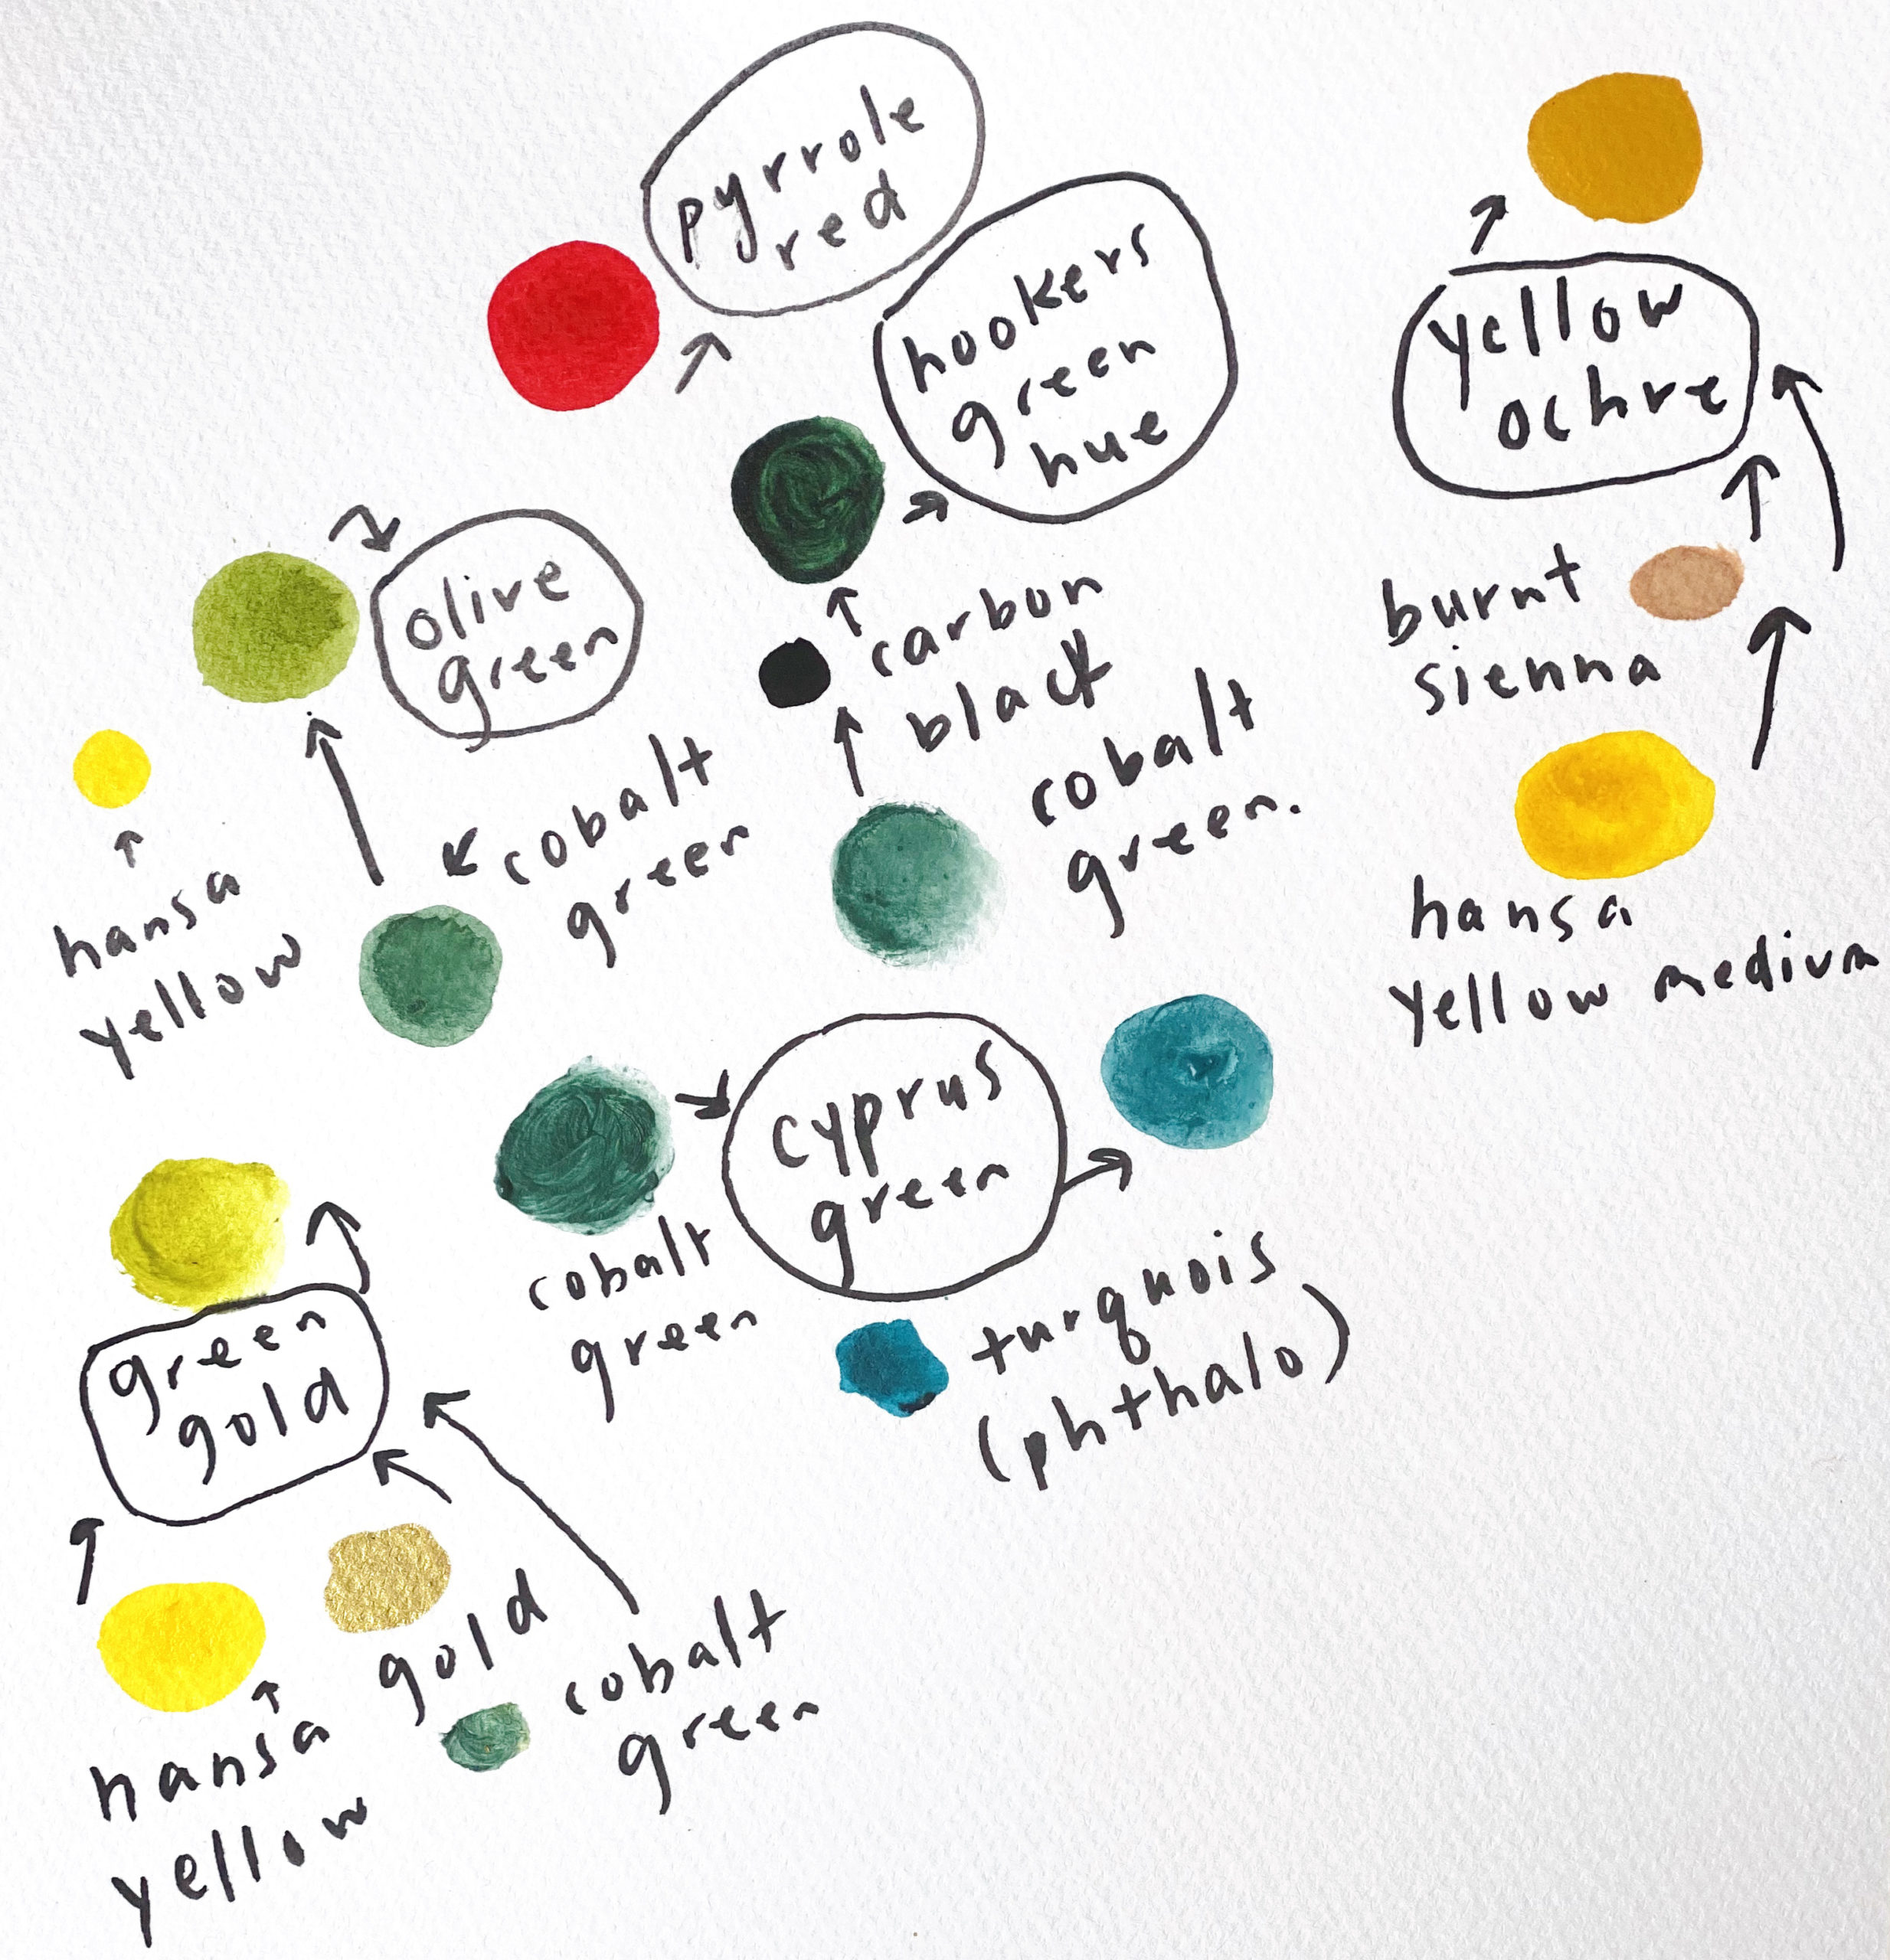 pyrrole
red
hookers
green
hue
yellow
ochre
olive
green
carbon
black
burnt
sienna
hansa
yellow
cobalt
green
cobalt
green.
hansa
yellow medium
cobalt
green
cyprus
green
turquois
(phthalo)
green
gold
hansa
yellow
gold
cobalt
green